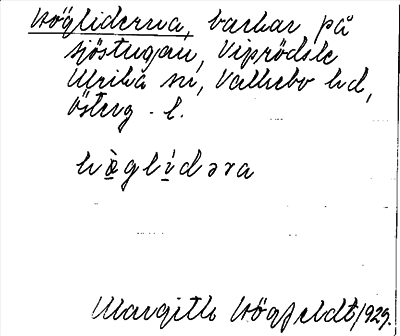 Högliderna, backar på
sjöstugan, Viprödsle
Ulrika sn, Valkebo hd,
Österg. l.
hœ̀glídəra
Margith Högfeldt 1929.